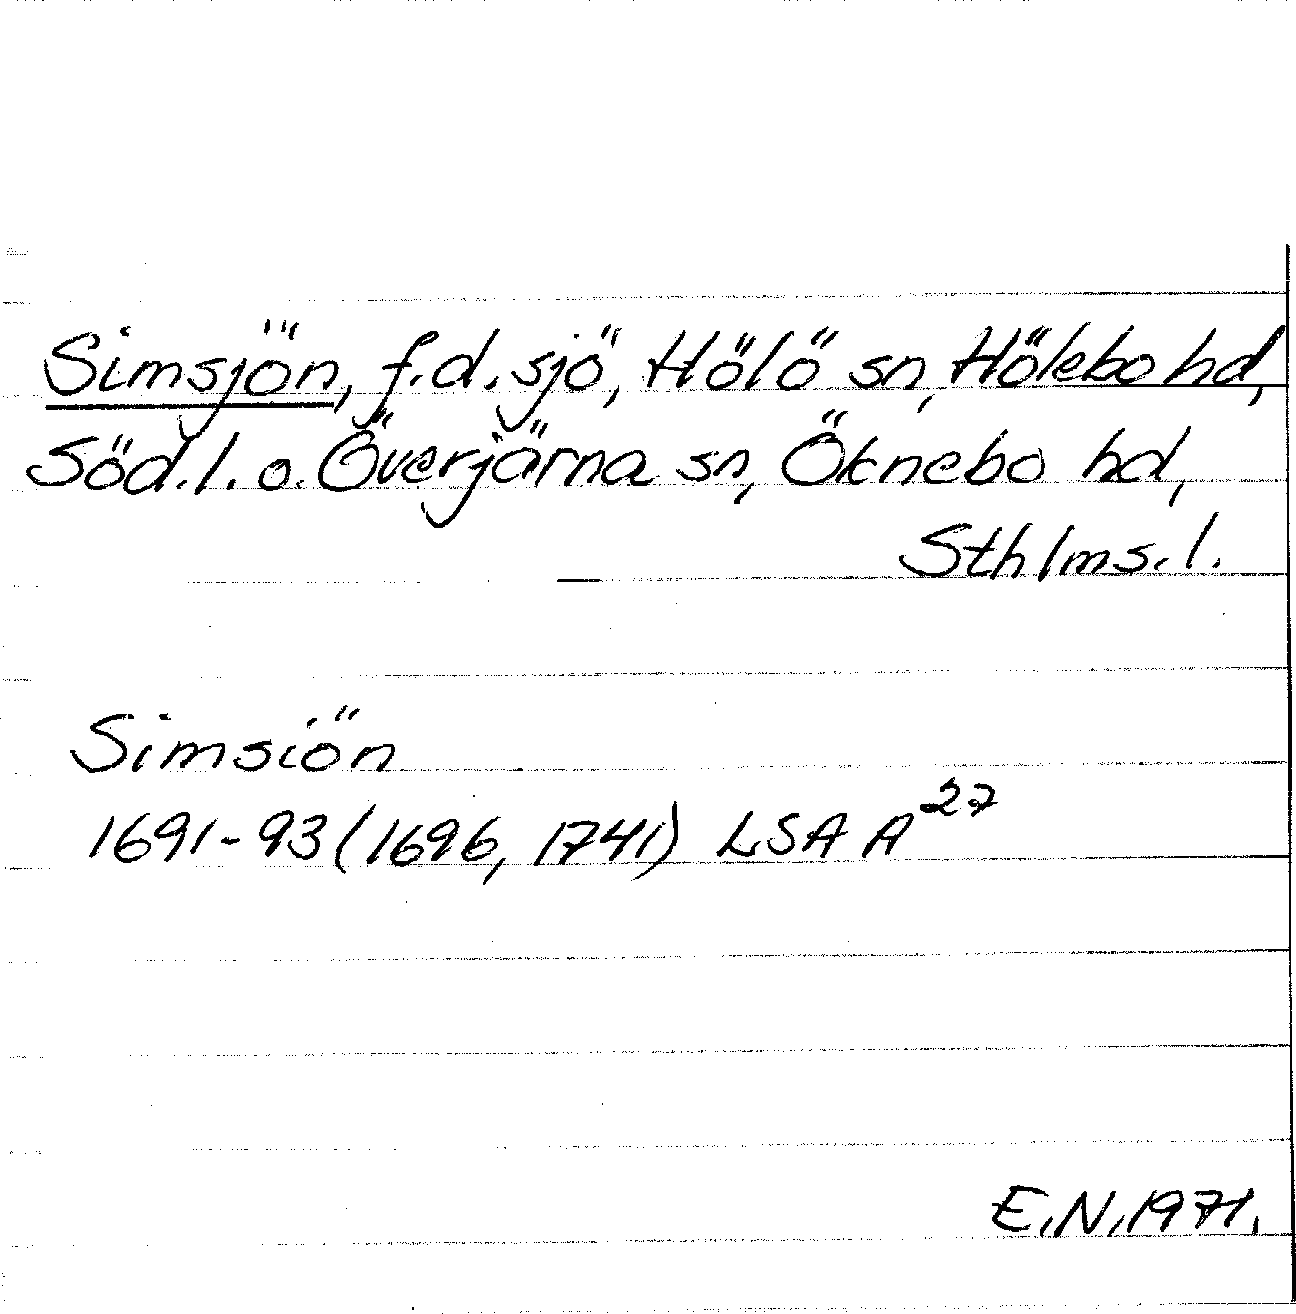 Simsjön, f.d. sjö, Hölö sn, Hölebo hd,
Söd. l. o. Överjärna sn, Öknebo hd,
Sthlms. l.
Simsiön
1691-93 (1696, 1741) LSA A²⁷
E.N. 1971.